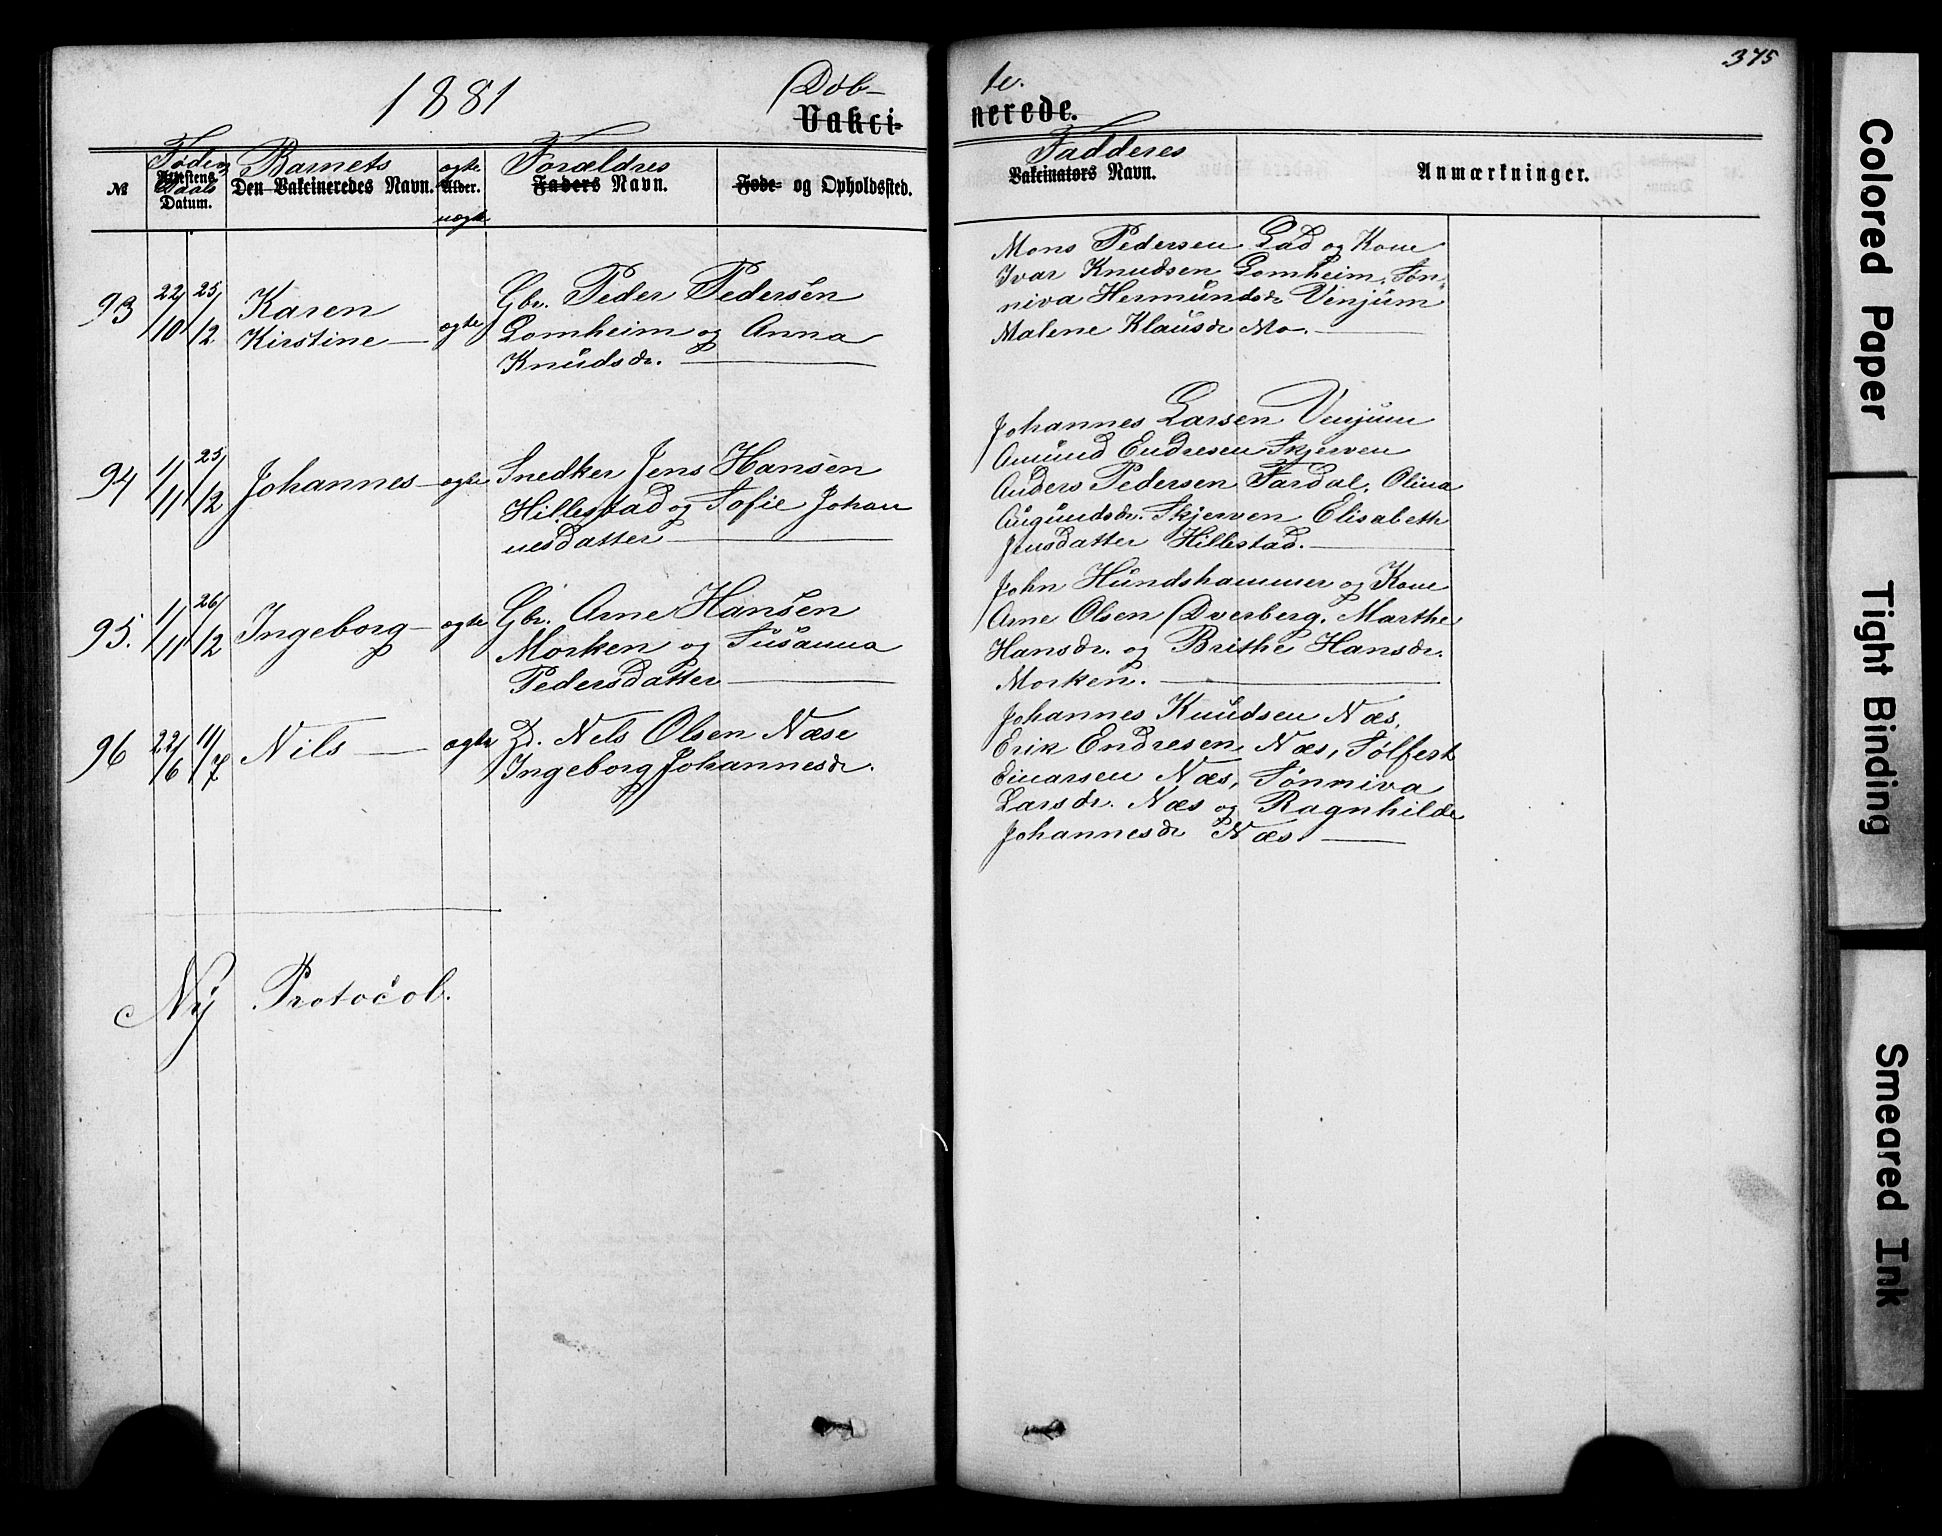 375
1881 Døbte.
Vakcinerede.
Føde og Barnets ægte Forældres Faddères
№ Attestens Daabs Datum. Den Vakcineredes Navn. Alder. uægte Faders Navn. Føde- og Opholdssted. Vakcinators Navn. Anmærkninger.
93 22/10 25/12 Karen Kirstine — ægte
Gbr. Peder Pedersen
Lomheim og Anna
Knudsdr. —
Mons Pedersen Lad og Kone
Ivar Knudsen Lomheim, Søn-
niva Hermundsdr Venjum
Malene Klausdr Mo. —
94 1/11 25/12 Johannes — ægte
Snedker Jens Hansen
Hillestad og Sofie Johan
nesdatter —
Johannes Larsen Venjum
Amund Endresen Skjerven
Anders Pedersen Fardal, Olina
Augundsdr. Skjerven Elisabeth
Jensdatter Hillestad. —
95. 1/11 26/12 Ingeborg — ægte
Gbr. Arne Hansen
Morken og Susanna
Pedersdatter —
John Hundshammer og Kone
Arne Olsen Dverberg, Marthe
Hansdr. og Brithe Hansdr.
Morken. —
96 22/6 11/7 Nils — ægte
Nels Olsen Næse
Ingeborg Johannesdr.
Johannes Knudsen Næs,
Erik Endresen Næs, Sølfest
Einarsen Næs, Sønniva
Larsdr. Næs og Ragnhilde
Johannesdr Næs. —
Ny Protocol.
Colored Paper
Tight Binding
Smeared Ink